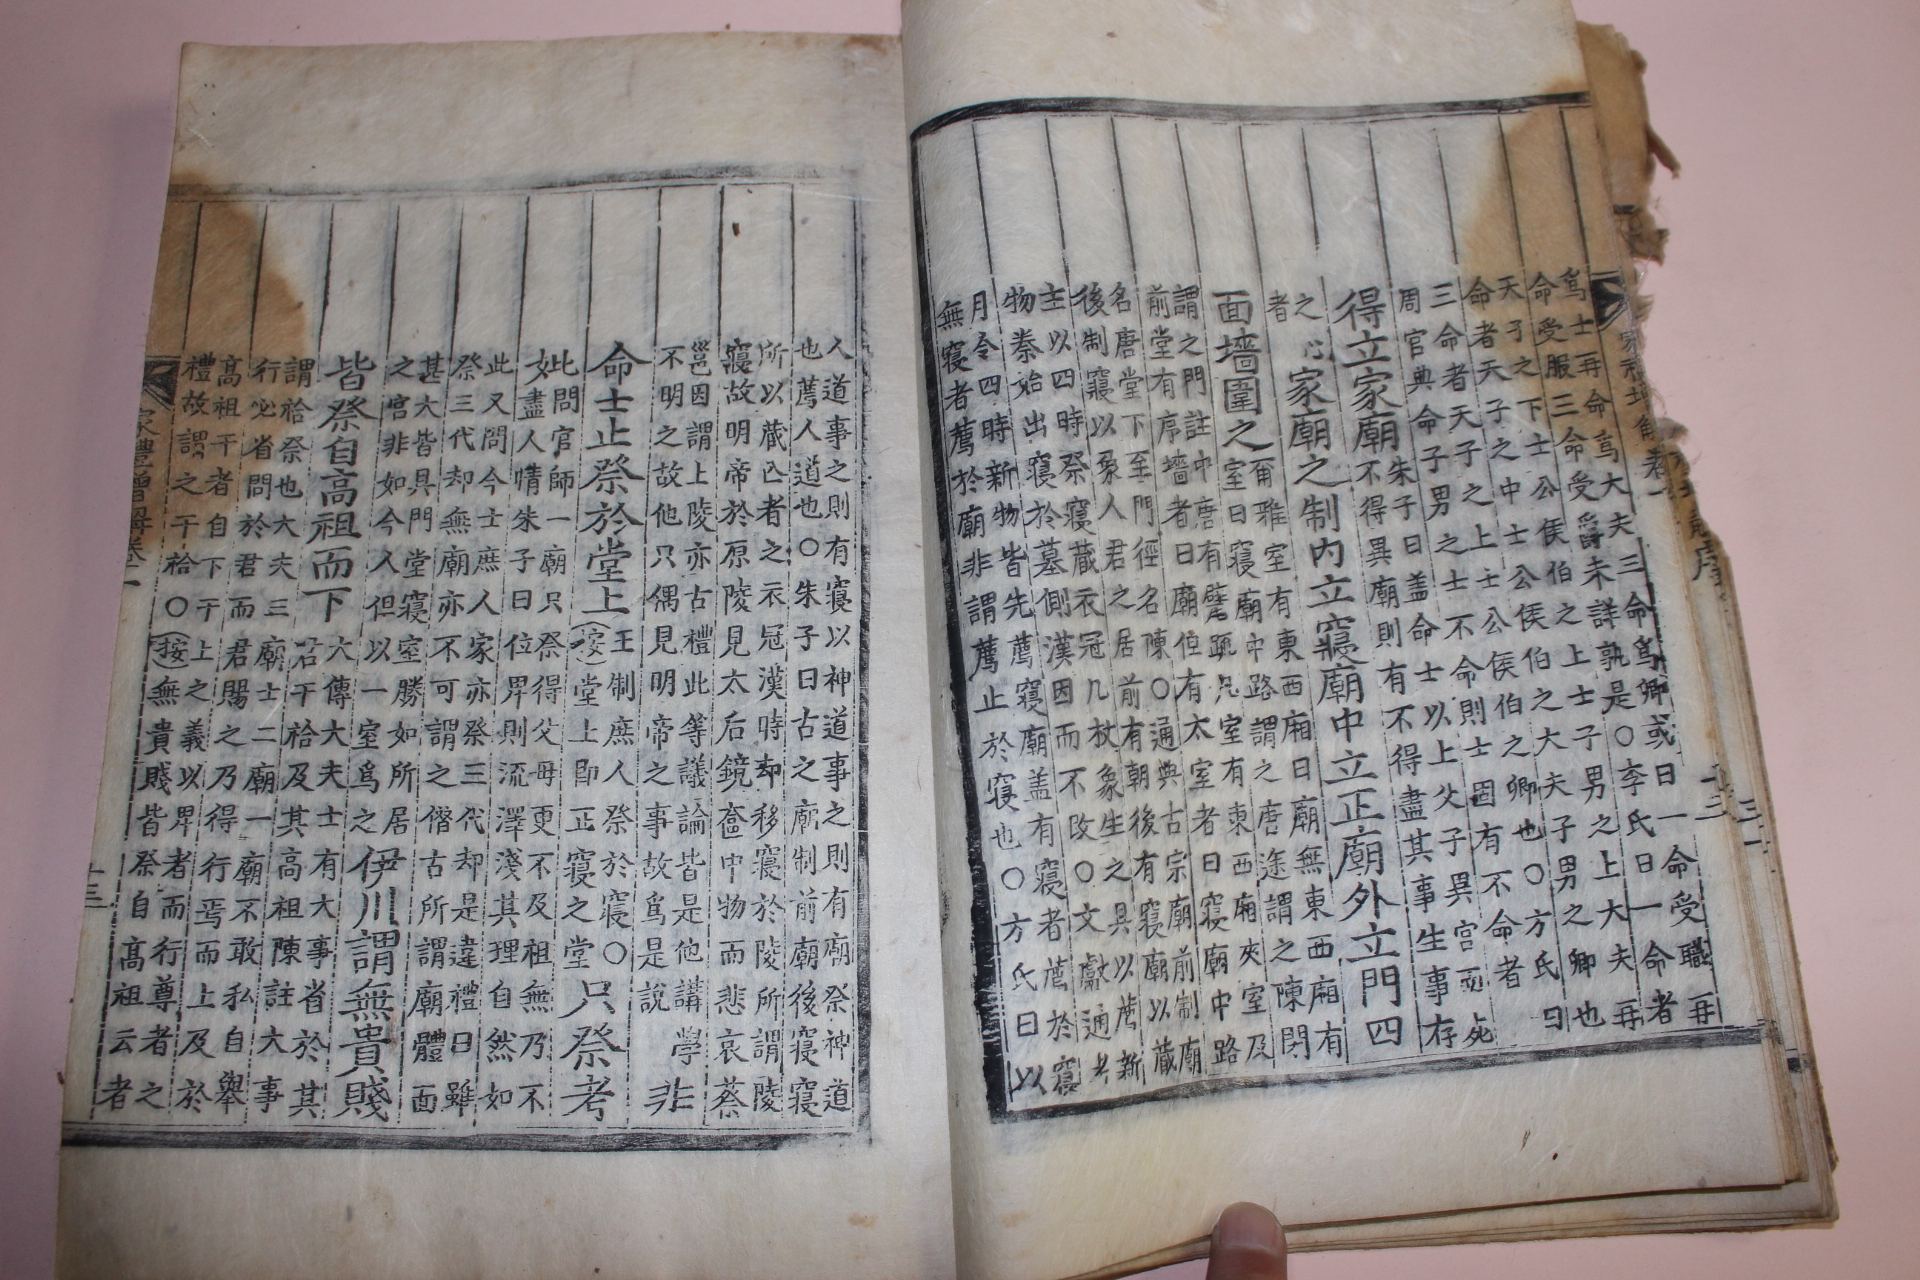 爲士再命爲大夫三命爲卿或曰一命受職再
命受服三命受爵未詳孰是○李氏曰一命者
天子之下士公侯伯之上士子男之上大夫再
命者天子之中士公侯伯之大夫子男之卿也
三命者天子之上士公侯伯之卿也○方氏曰
周官典命子男之士不命則士固有不命者
得立家廟
朱子曰盖命士以上父子異宮而死
不得異廟則有不得盡其事生事存
之
者
心
家廟之制内立寢廟中立正廟外立門四
面墻圍之
爾雅室有東西廂曰廟無東西廂有
室曰寢廟中路謂之唐途謂之陳閍
謂之門註中唐有甓疏凡室有東西廂夾室及
前堂有序墻者曰廟但有太室者曰寢廟中路
名唐堂下至門徑名陳○通典古宗廟前制廟
後制寢以象人君之居前有朝後有寢廟以藏
主以四時祭寢藏衣冠几杖象生之具以薦新
物秦始出寢於墓側漢因而不改○文獻通考
月令四時新物皆先薦寢廟盖有寢者薦於寢
無寢者薦於廟非謂薦止於寢也○方氏曰以
人道事之則有寢以神道事之則有廟祭神道
也薦人道也○朱子曰古之廟制前廟後寢寢
所以藏亡者之衣冠漢時却移寢於陵所謂陵
寢故明帝於原陵見太后鏡奩中物而悲哀蔡
邕因謂上陵亦古禮此等議論皆是他講學
不明之故他只偶見明帝之事故爲是說
非
命士止祭於堂上
王制庶人祭於寢○
(按)堂上即正寢之堂
只祭考
妣
此問官師一廟只祭得父母更不及祖無乃不
盡人情朱子曰位卑則流澤淺其理自然如
此又問今士庶人家亦祭三代却是違禮曰雖
祭三代却無廟亦不可謂之僭古所謂廟體面
甚大皆具門堂寢室勝如所居
之宮非如今人但以一室爲之
伊川謂無貴賤
皆祭自高祖而下
大傳大夫士有大事省於其
君干祫及其高祖陳註大事
謂祫祭也大夫三廟士二廟一廟不敢私自舉
行必省問於君而君賜之乃得行焉而上及於
高祖干者自下干上之義以卑者而行尊者之
禮故謂之干祫○(按)無貴賤皆祭自高祖云者
家禮增解卷一
十三